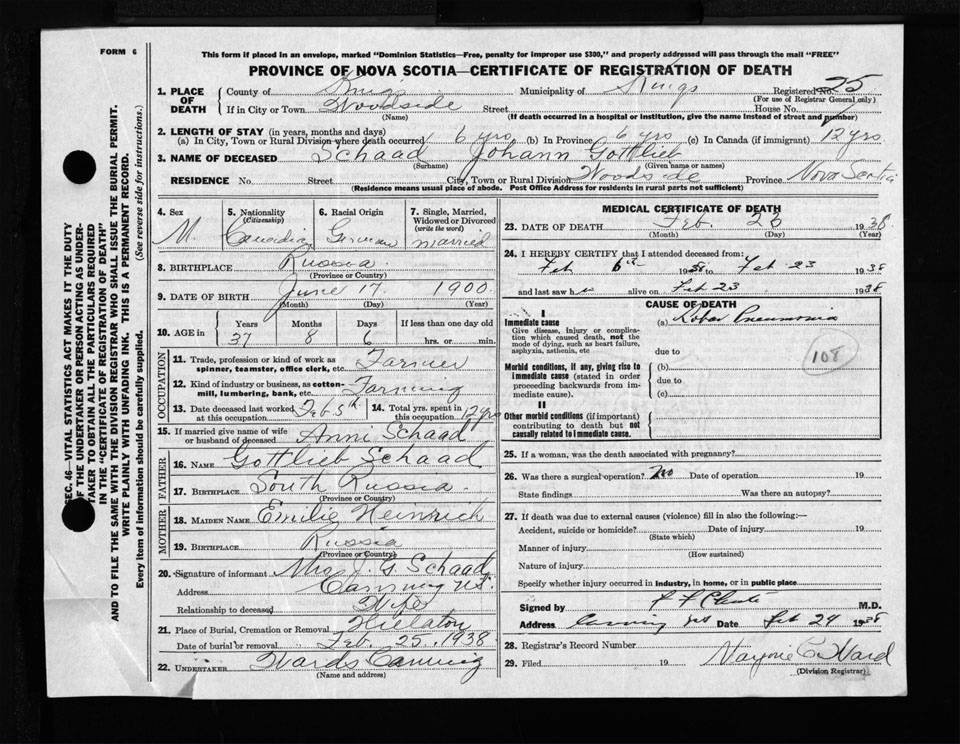 FORM 6
This form if placed in an envelope, marked "Dominion Statistics—Free, penalty for improper use $300," and properly addressed will pass through the mail "FREE"
PROVINCE OF NOVA SCOTIA—CERTIFICATE OF REGISTRATION OF DEATH
1. PLACE OF DEATH County of Kings Municipality of Kings Registered No. 25
(For use of Registrar General only)
If in City or Town Woodside Street House No.
(Name) (If death occurred in a hospital or institution, give the name instead of street and number)
2. LENGTH OF STAY (in years, months and days)
(a) In City, Town or Rural Division where death occurred 6 yrs (b) In Province 6 yrs (c) In Canada (if immigrant) 12 yrs
3. NAME OF DECEASED Schaad Johann Gottlieb
(Surname) (Given name or names)
RESIDENCE No. Street City, Town or Rural Division Woodside Province Nova Scotia
(Residence means usual place of abode. Post Office Address for residents in rural parts not sufficient)
4. Sex M.
5. Nationality (Citizenship) Canadian
6. Racial Origin German
7. Single, Married, Widowed or Divorced (write the word) married
8. BIRTHPLACE Russia
(Province or Country)
9. DATE OF BIRTH June 17 1900
(Month) (Day) (Year)
10. AGE in Years Months Days If less than one day old
37 8 6 hrs. or min.
OCCUPATION
11. Trade, profession or kind of work as spinner, teamster, office clerk, etc. Farmer
12. Kind of industry or business, as cotton-mill, lumbering, bank, etc. Farming
13. Date deceased last worked at this occupation Feb 5th
14. Total yrs. spent in this occupation 12 yrs
15. If married give name of wife or husband of deceased Anni Schaad
FATHER
16. NAME Gottlieb Schaad
17. BIRTHPLACE South Russia
(Province or Country)
MOTHER
18. MAIDEN NAME Emilie Heinrich
19. BIRTHPLACE Russia
(Province or Country)
20. Signature of informant Mrs J. G. Schaad
Address Canning N.S.
Relationship to deceased Wife
21. Place of Burial, Cremation or Removal Hillaton
Date of burial or removal Feb. 25. 1938
22. UNDERTAKER Wards Canning
(Name and address)
MEDICAL CERTIFICATE OF DEATH
23. DATE OF DEATH Feb. 23 1938
(Month) (Day) (Year)
24. I HEREBY CERTIFY that I attended deceased from:
Feb 6th 1938 to Feb 23 1938
and last saw h alive on Feb 23 1938
CAUSE OF DEATH
I
Immediate cause (a) Lobar Pneumonia
Give disease, injury or complication which caused death, not the mode of dying, such as heart failure, asphyxia, asthenia, etc
due to
108
Morbid conditions, if any, giving rise to immediate cause (stated in order proceeding backwards from immediate cause).
(b)
due to
(c)
II
Other morbid conditions (if important) contributing to death but not causally related to immediate cause.
25. If a woman, was the death associated with pregnancy?
26. Was there a surgical operation? No Date of operation 19
State findings Was there an autopsy?
27. If death was due to external causes (violence) fill in also the following:—
Accident, suicide or homicide? Date of injury 19
(State which)
Manner of injury
(How sustained)
Nature of injury
Specify whether injury occurred in industry, in home, or in public place
Signed by M.D.
Address Canning NS Date Feb 24 1938
28. Registrar's Record Number
29. Filed 19 Marjorie C. Ward
(Division Registrar)
SEC. 46—VITAL STATISTICS ACT MAKES IT THE DUTY
OF THE UNDERTAKER OR PERSON ACTING AS UNDERTAKER TO OBTAIN ALL THE PARTICULARS REQUIRED
IN THE "CERTIFICATE OF REGISTRATION OF DEATH"
AND TO FILE THE SAME WITH THE DIVISION REGISTRAR WHO SHALL ISSUE THE BURIAL PERMIT.
WRITE PLAINLY WITH UNFADING INK. THIS IS A PERMANENT RECORD.
Every item of information should be carefully supplied. (See reverse side for instructions.)